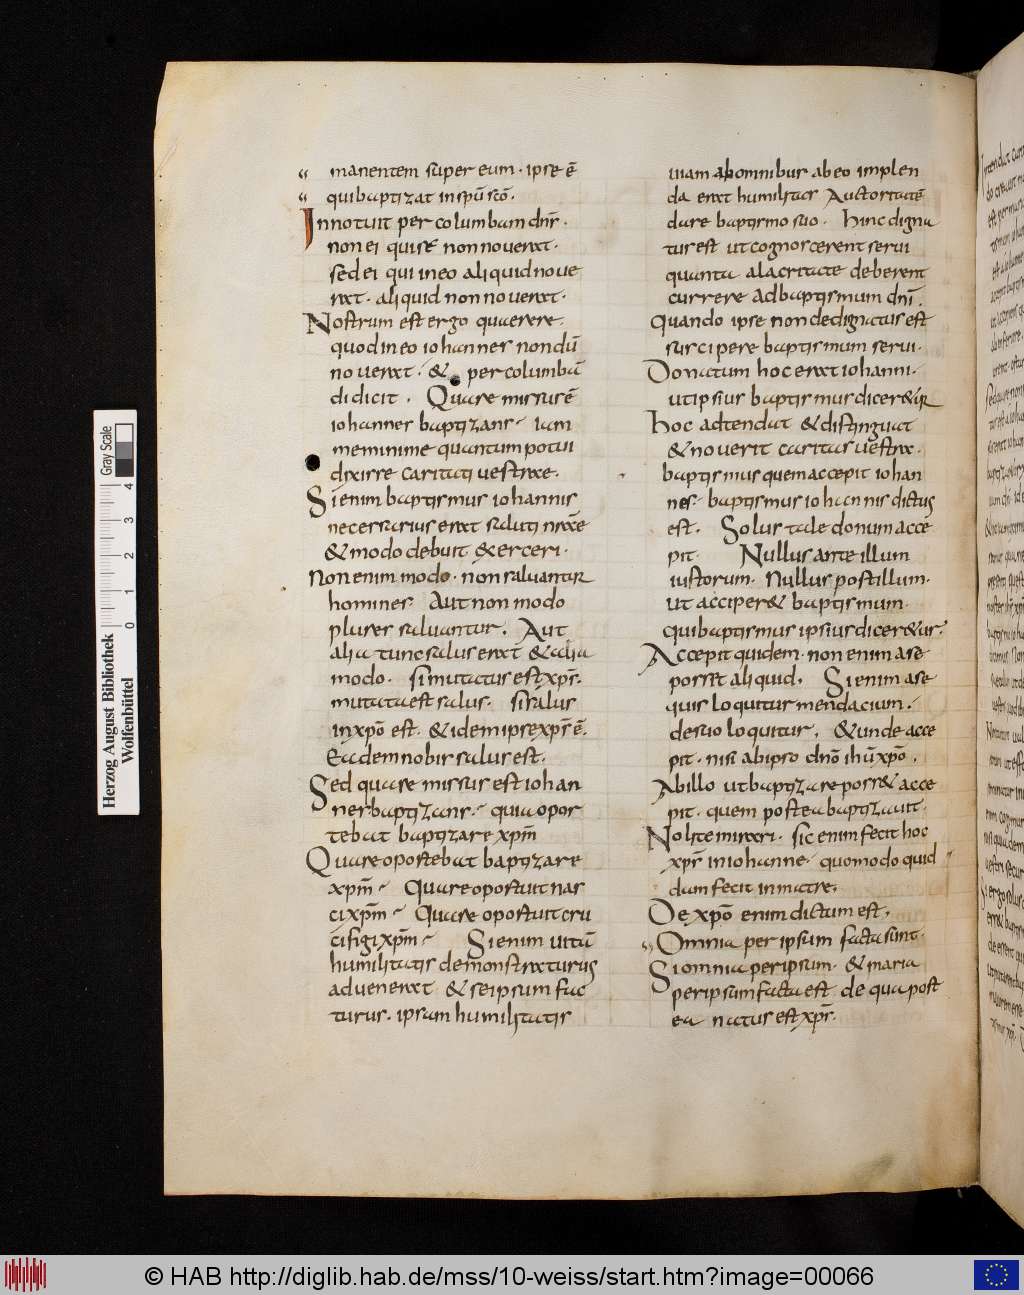 manentem super eum · ipse ē
qui baptizat in spū scō ·
Innotuit per columbam dn̄s ·
non ei qui sē non noverat ·
sed ei qui in eo aliquid nove
rat · aliquid non noverat ·
Nostrum est ergo quaerere ·
quod in eo iohannes nondū
noverat · & per columbā
didicit · Quare missus ē
iohannes baptizans · iam
memini me quantum potui
dixisse caritati vestrae ·
Si enim baptismus iohannis
necessarius erat saluti nrae
& modo debuit exerceri ·
Non enim modo · non salvantur
homines · Aut non modo
plures salvantur · Aut
alia tunc salus erat & alia
modo · si mutatus est xps ·
mutata est salus · si salus
in xpō est · & idem ipse xps ē ·
Eadem nobis salus est ·
Sed quare missus est iohan
nes baptizans · quia opor
tebat baptizare xpm̄
Quare oportebat baptizare
xpm̄ · Quare oportuit nas
ci xpm̄ · Quare oportuit cru
cifigi xpm̄ · Si enim vitā
humilitatis demonstraturus
advenerat & se ipsum fac
turus · ipsam humilitatis
viam ab omnibus ab eo implen
da erat humilitas Auctoritatē
dare baptismo suo · hinc digna
tus est ut cognoscerent servi
quanta alacritate deberent
currere ad baptismum dn̄i ·
Quando ipse non dedignatus est
suscipere baptismum servi ·
Donatum hoc erat iohanni ·
ut ipsius baptismus dicer&ur
Hoc adtendat & distinguat
& noverit caritas vestra ·
baptismus quem accepit iohan
nes · baptismus iohannis dictus
est · Solus tale donum acce
pit · Nullus ante illum
iustorum · Nullus post illum ·
ut acciper& baptismum
qui baptismus ipsius dicer&ur ·
Accepit quidem · non enim a se
posset aliquid · Si enim a se
quis loquitur mendacium ·
de suo loquitur · & unde acce
pit · nisi ab ipso dn̄o ihū xpō ·
Ab illo ut baptizare poss& acce
pit · quem postea baptizavit ·
Nolite mirari · sic enim fecit hoc
xps in iohanne · quomodo quid
dam fecit in matre ·
De xpō enim dictum est ·
Omnia per ipsum facta sunt ·
Si omnia per ipsum · & maria
per ipsum facta est de qua post
ea natus est xps ·
Herzog August Bibliothek
Wolfenbüttel
Gray Scale
0 1 2 3 4
© HAB http://diglib.hab.de/mss/10-weiss/start.htm?image=00066